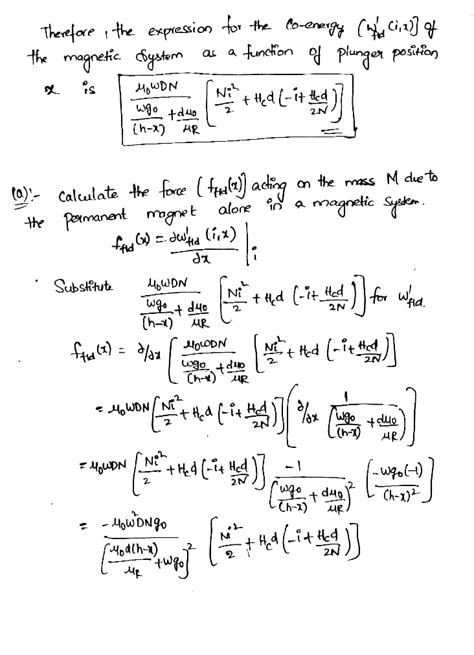 Therefore, the expression for the Co-energy (W'fld (i,x)] of
the magnetic System as a function of plunger position
x is μ₀WDN / (Wg₀/(h-x) + dμ₀/μR) [Ni²/2 + Hcd (-i + Hcd/2N)]
(a):- Calculate the force [ffld(x)] acting on the mass M due to
the Permanent magnet alone in a magnetic System.
ffld (x) = ∂w'fld (i,x)/∂x |i
Substitute μ₀WDN / (Wg₀/(h-x) + dμ₀/μR) [Ni²/2 + Hcd (-i + Hcd/2N)] for W'fld.
ffld (x) = ∂/∂x [μ₀WDN / (Wg₀/(h-x) + dμ₀/μR) [Ni²/2 + Hcd (-i + Hcd/2N)]
= μ₀WDN [Ni²/2 + Hcd (-i + Hcd/2N)] (∂/∂x 1 / [Wg₀/(h-x) + dμ₀/μR])
= μ₀WDN [Ni²/2 + Hcd (-i + Hcd/2N)] -1 / (Wg₀/(h-x) + dμ₀/μR)² [-Wg₀(-1)/(h-x)²]
= -μ₀W²DNg₀ / [μ₀d(h-x)/μR + Wg₀]² [Ni²/2 + Hcd (-i + Hcd/2N)]